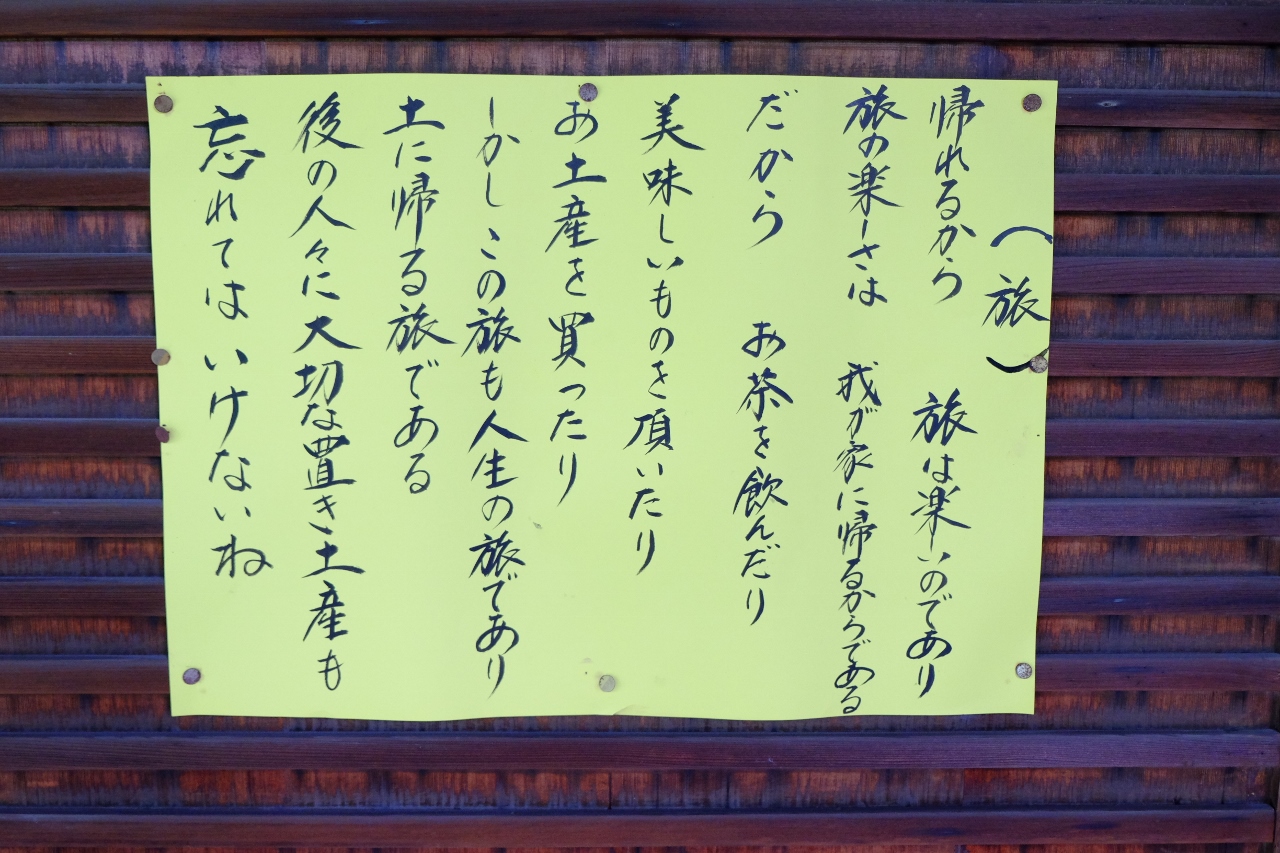 （旅）
帰れるから　旅は楽しいのであり
旅の楽しさは　我が家に帰るからである
だから　お茶を飲んだり
美味しいものを頂いたり
お土産を買ったり
しかしこの旅も人生の旅であり
土に帰る旅である
後の人々に大切な置き土産も
忘れてはいけないね